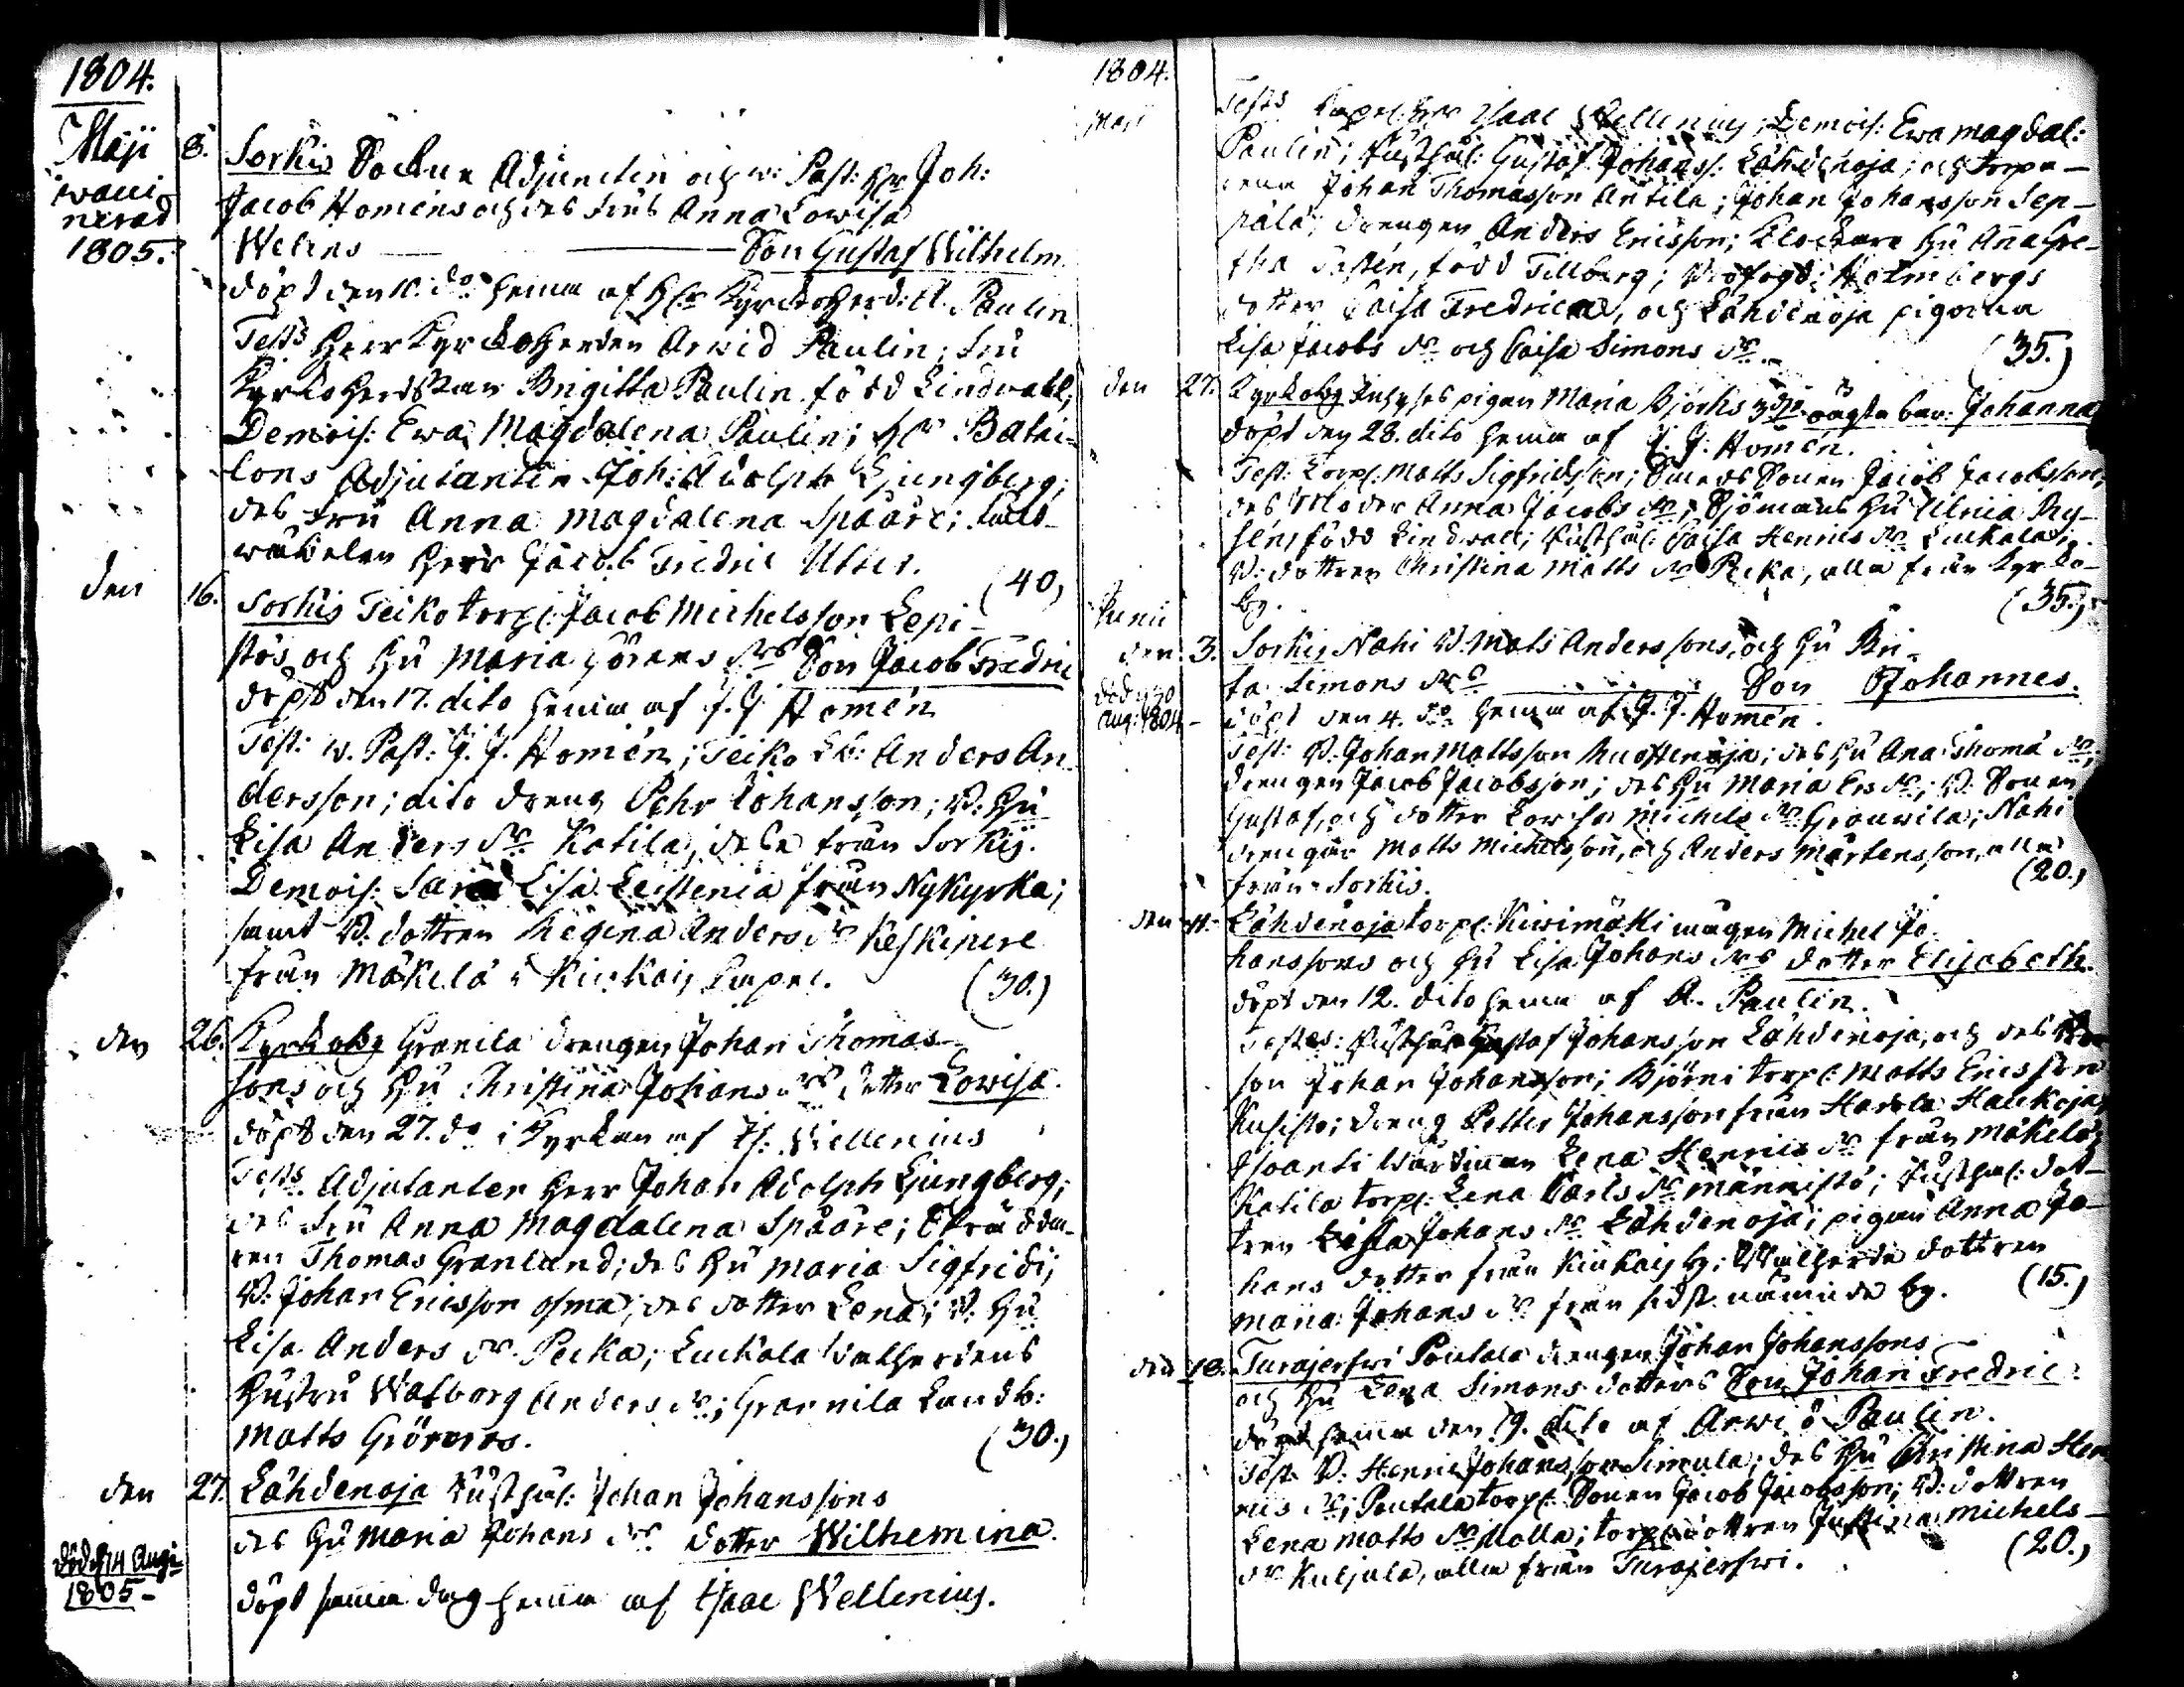 1804.
Maji 8. Sorkis Sockne Adjuncten och v: Past: Hr Joh:
Jacob Homéns och des Frus Anna Lowisa
Welins Son Gustaf Wilhelm
vaccinerad 1805.
döpt den 10. do hemma af Hr Kyrckoherd: A. Paulin
Tests Herr Kyrckoherden Arwid Paulin; Fru
Kyrckoherdskan Brigitta Paulin född Lindwall;
Demois: Ewa Magdalena Paulin; Hr Batail-
lons Adjutanten Joh: Adolph Ljungberg;
des Fru Anna Magdalena Spåäre;
Herr Jacob Fredric Utter.
(40)
den 16. Sorkis Teiko torp: Jacob Michelsson Lepi-
stös och Hu Maria Görans drs Son Jacob Fredric
döpt den 17. dito hemma af J. J. Homén
Test: v. Past: J. J. Homén; Teiko Lb: Anders An-
dersson; dito dreng Pehr Johansson; B. Hu
Lisa Anders dr Katila, från Sorkis.
Demois: Lisa Leistenia från Nykyrka;
samt B. dottren Regina Anders dr Keskipere
från Mäkelä i Kiukais Capel.
(30.)
den 26. Kyrkoby Granila drengen Johan Thomas-
sons och Hu Christina Johans drs dotter Lowisa.
döpt den 27. do i Kyrkan af Is: Wellenius
Tests Adjutanten Herr Johan Adolph Ljungberg;
des Fru Anna Magdalena Spåäre; Skrädda-
ren Thomas Granlund; des Hu Maria Sigfridi;
B. Johan Ericsson Osma; des dotter Lena; B. Hu
Lisa Anders dr Pecka; Luckala Walherdens
Hustru Walborg Anders dr; Grannila Landb:
Matts Görans.
(30.)
den 27. Lähdenoja Rusthål: Johan Johanssons
des Hu Maria Johans drs dotter Wilhemina.
död d 14 Aug: 1805-
döpt samma dag hemma af Isaac Wellenius.
1804.
Maji
Tests Capel: Hr Isaac Wellenius; Demois: Ewa Magdal:
Paulin; Rusthål: Gustaf Johanss: Lähdenoja; och torpa-
rena Johan Thomasson Antila; Johan Johansson Sep-
pälä; drengen Anders Ericsson; Klockare Hu Anna Gre-
tha född Tillberg; Holmbergs
dotter Caisa Fredrica, och Lähdenoja pigorna
Lisa Jacobs dr och Caisa Simons dr.
(35.)
den 27. Kyrkoby Inhyses pigan Maria Björks 3dje oägta barn: Johanna
döpt den 28. dito hemma af J. J. Homén.
Test: Torp: Matts Sigfridsson; Sonen Jacob Jacobsson;
des Moder Anna Jacobs dr; Sjömans Hu Ulrica
född Lindwall; Rusthål: Caisa Henrics dr Luckala;
B. dottren Christina Matts dr Pecka, alla från Kyrko-
by.
(35.)
Junii
den 3. Sorkis Nahi B. Mats Anderssons, och Hu Bri-
ta Simons drs Son Johannes.
död d 30 Aug: 1804-
döpt den 4. do hemma af J. J. Homén.
Test: B. Johan Mattsson Ruostenoja; des Hu Ana Thoma dr;
drengen Jacob Jacobsson; des Hu Maria Ers dr; B. Sonen
Gustaf, och dotter Lowisa Michels dr Granwila; Nahi
drengar Matts Michelsson, och Anders Mårtensson, alla
från Sorkis.
(20.)
den 11. Lähdenoja torp: Kiwimäki mågen Michel Jo-
hanssons och Hu Lisa Johans drs dotter Elisabeth.
döpt den 12. dito hemma af A. Paulin.
Testes: Rusthål: Gustaf Johansson Lähdenoja, och des
son Johan Johansson; Björni torp: Matts Ericsson
Kusisto; dreng Petter Johansson från Haukoja;
Isoanti Wärdinnan Lena Henrics dr från Mäkelä;
Katila torp: Lena Carls dr Männistö; Rusthål: dot-
tren Lisa Johans dr Lähdenoja; pigan Anna Jo-
hans dotter från Kiukais by; Walherde dottren
Maria Johans dr från sidst nämnde by.
(15.)
den 18. Turajerfwi Pontala drengen Johan Johanssons
och Hu Lena Simons dotters Son Johan Fredric
döpt hemma den 19. dito af Arwid Paulin.
Test: B. Henric Johansson Simula; des Hu Christina Hen-
rics dr; Pontala torp: Sonen Jacob Jacobsson; B. dottren
Lena Matts dr Molla; torp: dottren Justina Michels
dr Kuljula, alla från Turajerfwi.
(20.)